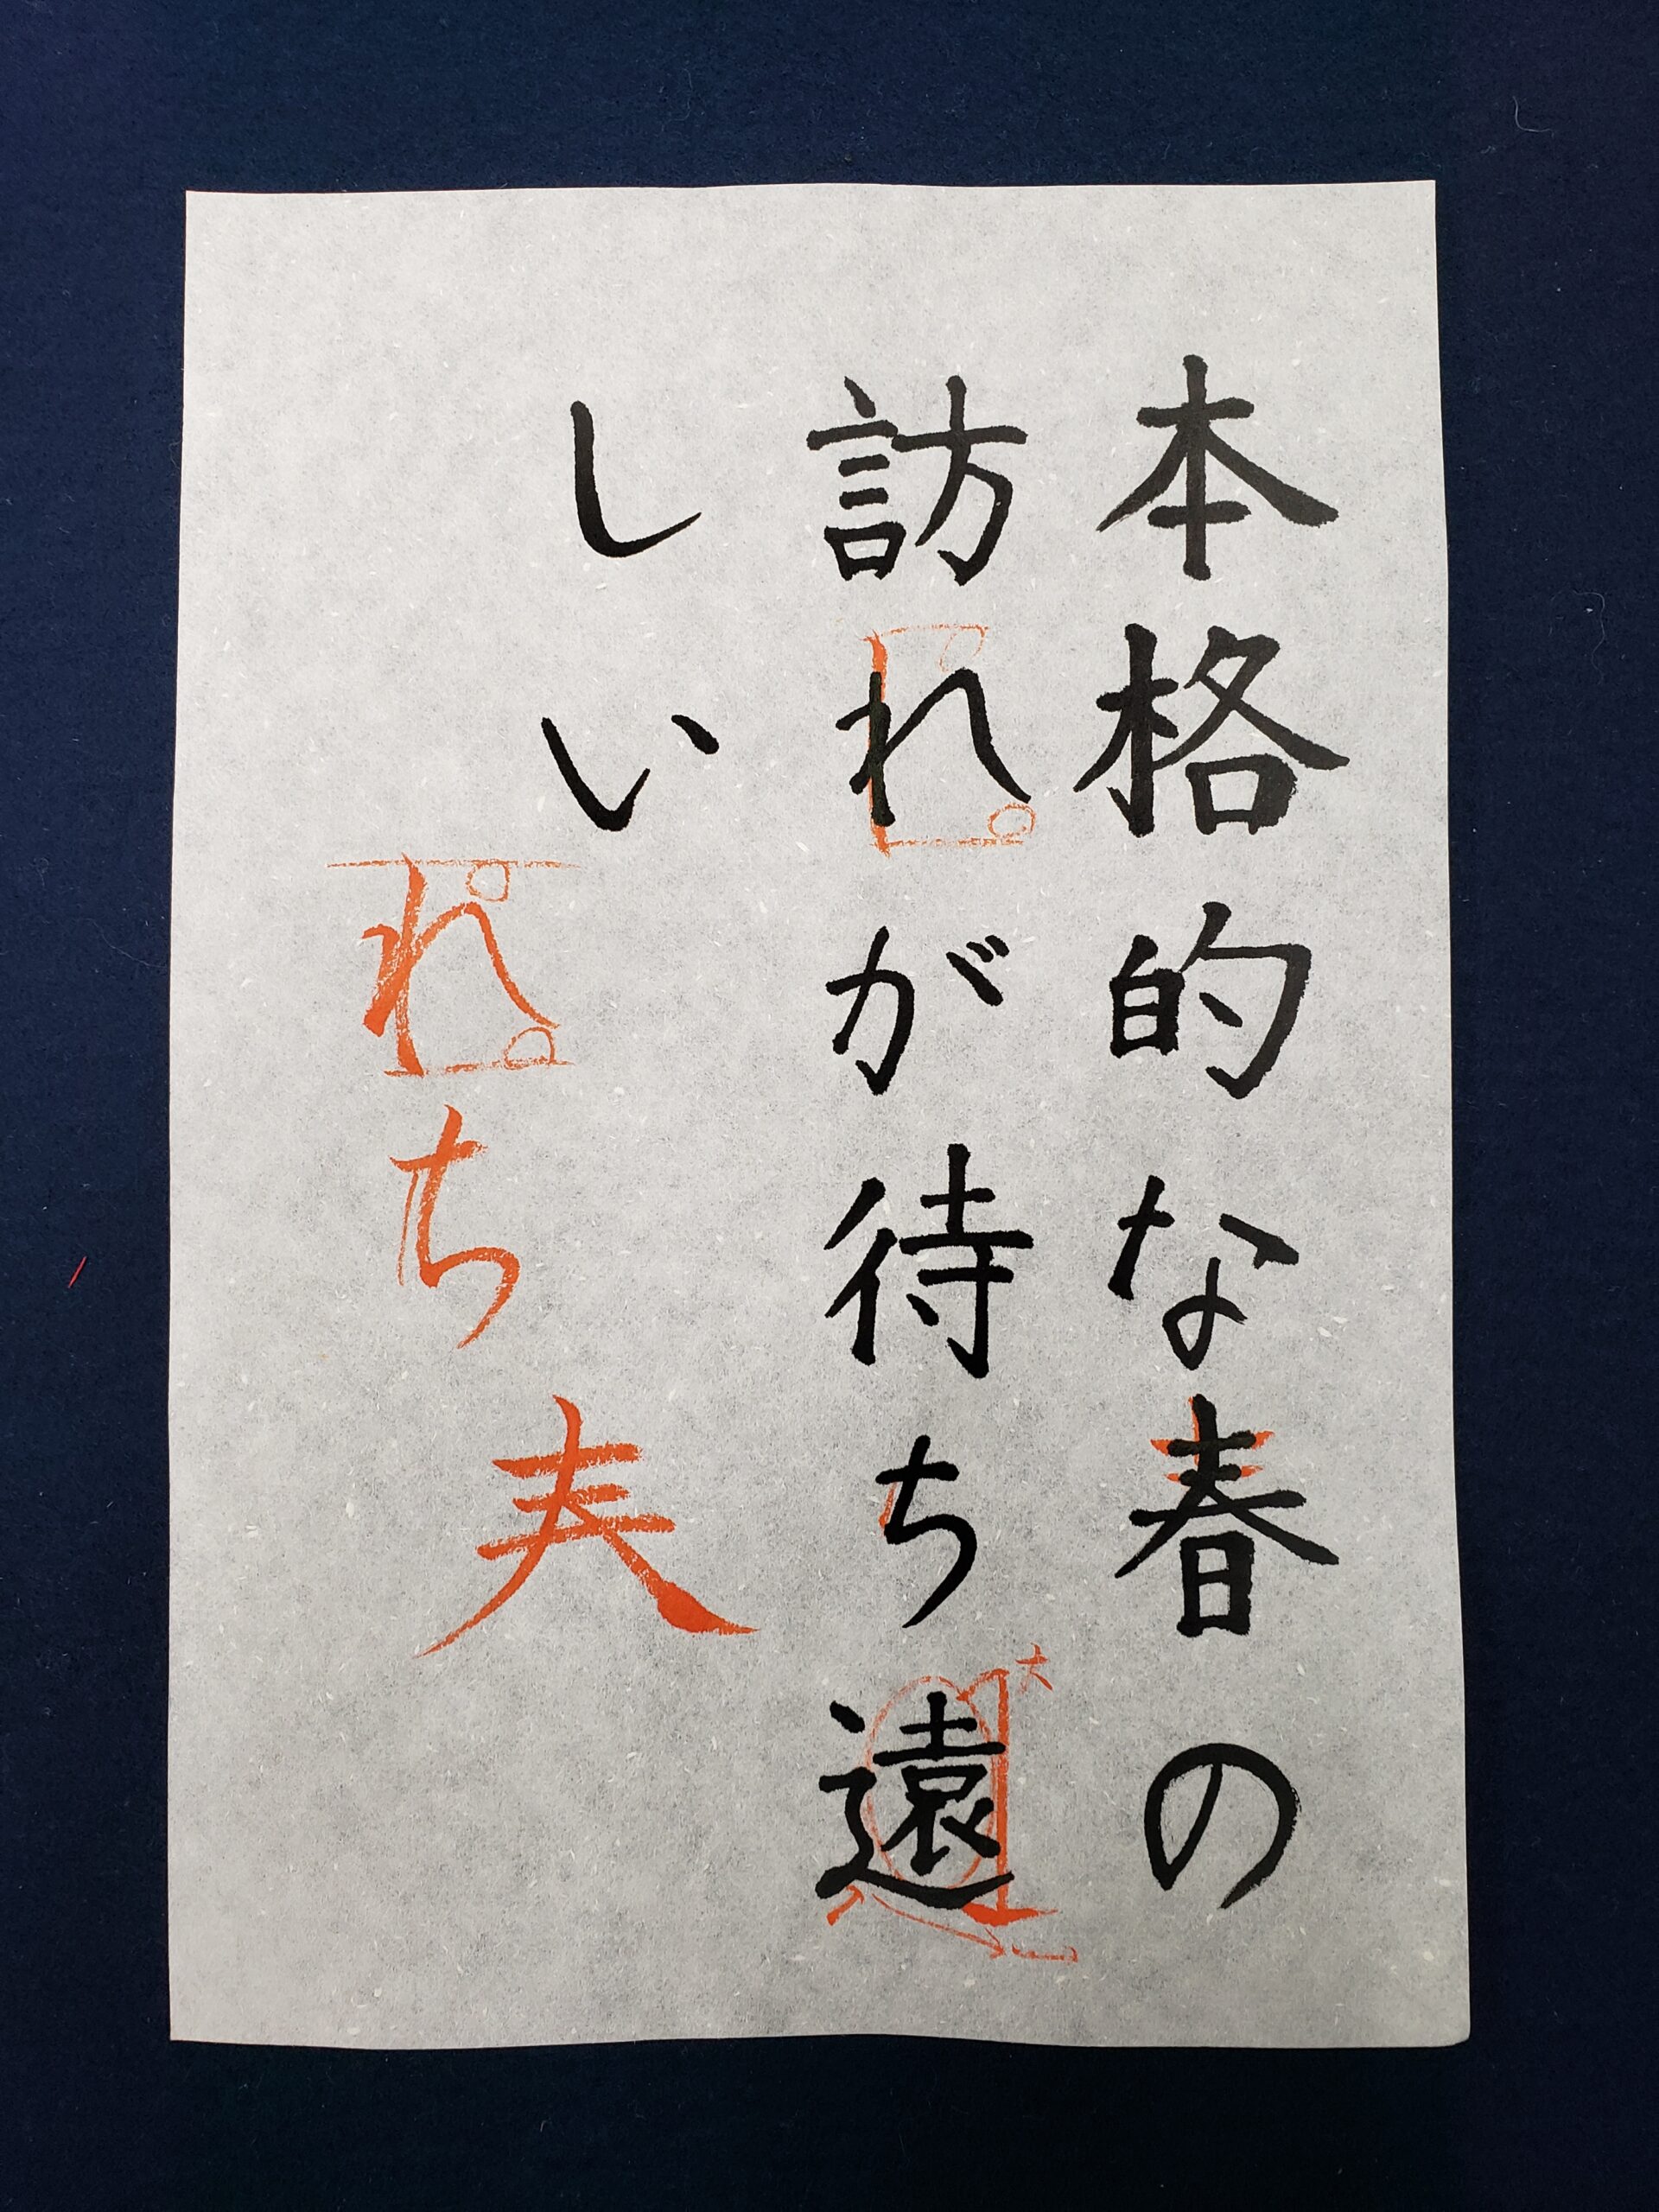 本格的な春の
訪れが待ち遠
しい
れち𡗗
大